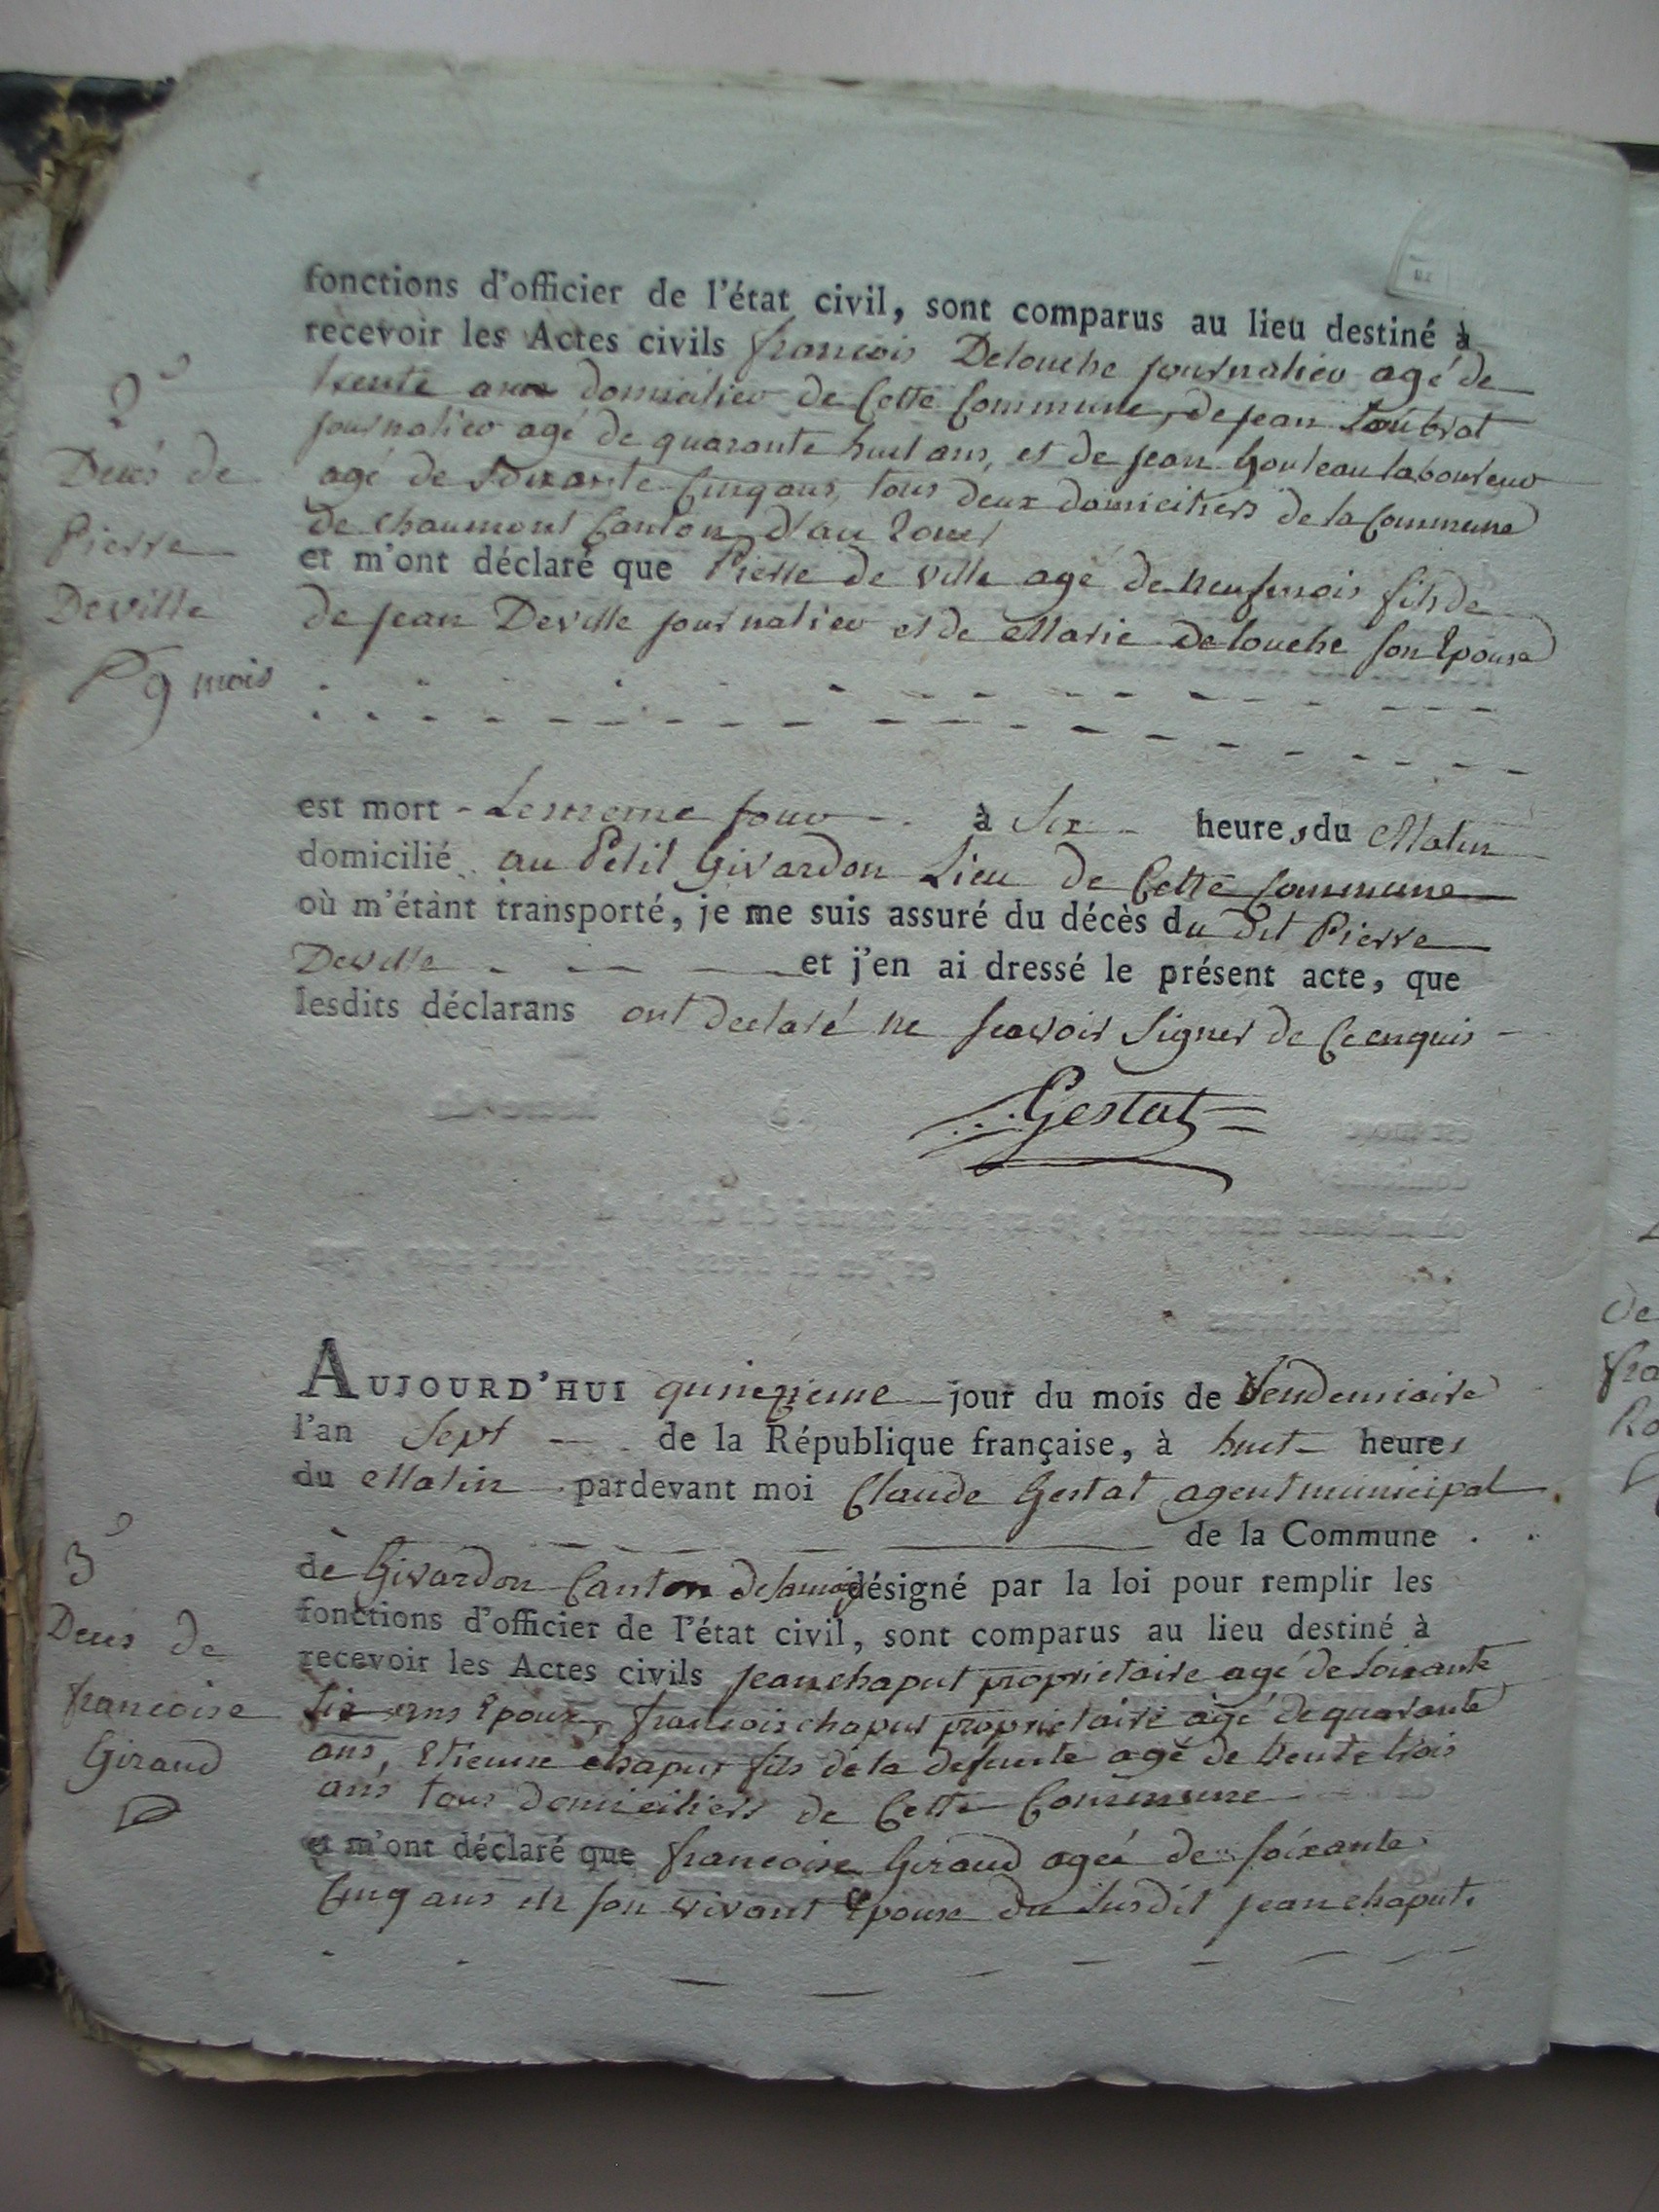 fonctions d'officier de l'état civil, sont comparus au lieu destiné à
recevoir les Actes civils francois Delouche journalier agé de
trente ans domicilier de Cette Commune, de jean
journalier agé de quarante huit ans, et de jean Gouleau laboureur
agé de Soixante Cinq ans, tous deux domiciliers de la Commune
de Chaumont Canton
et m'ont déclaré que Pierre de ville agé de neuf mois fils de
de jean Deville journalier et de Marie Delouche son Epouse
est mort Le meme jour à Six heures du Matin
domicilié au Petit Givardon Lieu de Cette Commune
où m'étant transporté, je me suis assuré du décès du dit Pierre
Deville et j'en ai dressé le présent acte, que
lesdits déclarans ont declaré ne scavoir Signer de Ce enquis
Gestat
2e
Deces de
Pierre
Deville
9 mois
AUJOURD'HUI quinezieme jour du mois de Vendemiaire
l'an Sept de la République française, à huit heures
du Matin pardevant moi Claude Gestat agent municipal
de la Commune
de Givardon Canton de désigné par la loi pour remplir les
fonctions d'officier de l'état civil, sont comparus au lieu destiné à
recevoir les Actes civils jean chaput proprietaire agé de Soixante
Six ans Epoux, francois chaput proprietaire agé de quarante
ans, Etienne chaput fils de la defunte agé de trente trois
ans tous domiciliers de Cette Commune
et m'ont déclaré que francoise Giraud ageé de soixante
Cinq ans en son vivant Epouse du Susdit jean chaput.
3e
Deces de
francoise
Giraud